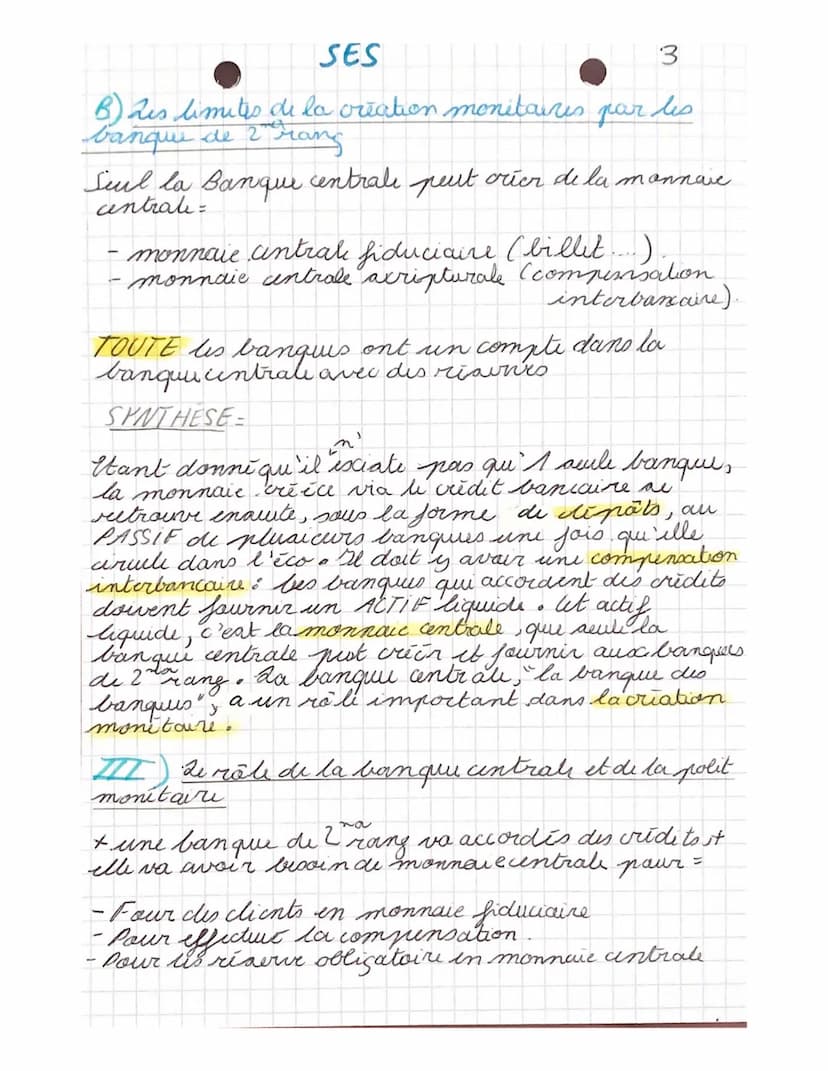 SES
3
B) Les limites de la création monétaires par les
banque de 2nd rang
Seul la Banque centrale peut créer de la monnaie
centrale =
- monnaie centrale fiduciaire (billet....).
- monnaie centrale scripturale (compensation
interbancaire).
TOUTE les banques ont un compte dans la
banque centrale avec des réserves
SYNTHÈSE =
n'
Etant donné qu'il existe pas qu'1 seule banque,
la monnaie créée via le crédit bancaire se
retrouve ensuite, sous la forme de dépôts, au
PASSIF de plusieurs banques une fois qu'elle
circule dans l'éco. Il doit y avoir une compensation
interbancaire : les banques qui accordent des crédits
doivent fournir un ACTIF liquide. Cet actif
liquide, c'est la monnaie centrale, que seule la
banque centrale peut créér et fournir aux banques
de 2nd rang. La banque centrale, "la banque des
banques", a un rôle important dans la création
monétaire.
III) Le rôle de la banque centrale et de la polit
monétaire
+ une banque de 2nd rang va accordés des crédits +
elle va avoir besoin de monnaie centrale pour =
- Four des clients en monnaie fiduciaire
- Pour effectué la compensation.
- Pour les réserve obligatoire en monnaie centrale